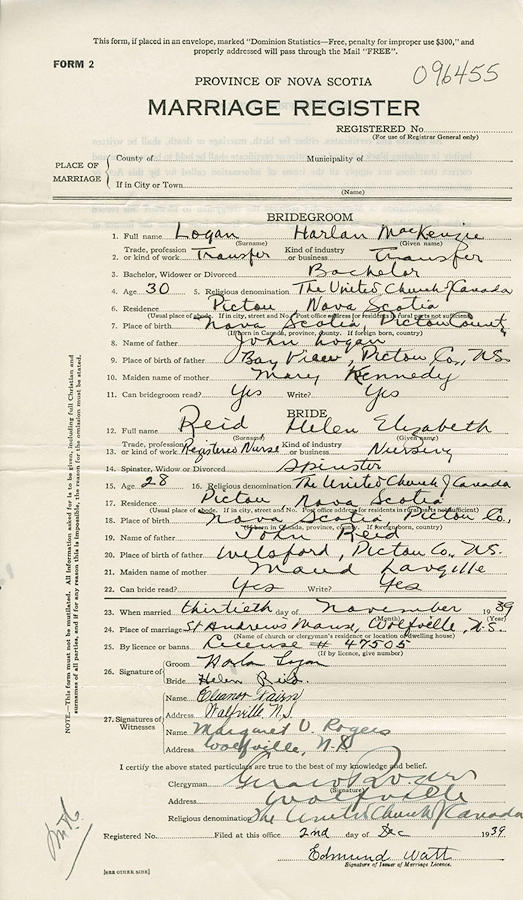 This form, if placed in an envelope, marked "Dominion Statistics—Free, penalty for improper use $300," and
properly addressed will pass through the Mail "FREE".
FORM 2
096455
PROVINCE OF NOVA SCOTIA
MARRIAGE REGISTER
REGISTERED No.
(For use of Registrar General only)
PLACE OF MARRIAGE
County of
Municipality of
If in City or Town
(Name)
BRIDEGROOM
1. Full name Logan Harlan MacKenzie
(Surname) (Given name)
2. Trade, profession or kind of work Transfer Kind of industry or business Transfer
3. Bachelor, Widower or Divorced Bachelor
4. Age 30 5. Religious denomination The United Church of Canada
6. Residence Pictou Nova Scotia
(Usual place of abode. If in city, street and No. Post office address for residents in rural parts not sufficient)
7. Place of birth Nova Scotia Pictou County
(If born in Canada, province, county. If foreign born, country)
8. Name of father John Logan
9. Place of birth of father Bay View, Pictou Co., N.S.
10. Maiden name of mother Mary Kennedy
11. Can bridegroom read? Yes Write? Yes
BRIDE
12. Full name Reid Helen Elizabeth
(Surname) (Given name)
13. Trade, profession or kind of work Registered Nurse Kind of industry or business Nursing
14. Spinster, Widow or Divorced Spinster
15. Age 28 16. Religious denomination The United Church of Canada
17. Residence Pictou Nova Scotia
(Usual place of abode. If in city, street and No. Post office address for residents in rural parts not sufficient)
18. Place of birth Nova Scotia Pictou Co.,
(If born in Canada, province, county. If foreign born, country)
19. Name of father John Reid
20. Place of birth of father Welsford, Pictou Co., N.S.
21. Maiden name of mother Maud Langille
22. Can bride read? Yes Write? Yes
23. When married thirtieth day of November 1939
(Month) (Year)
24. Place of marriage St Andrew's Manse, Wolfville, N.S.
(Name of church or clergyman's residence or location of dwelling house)
25. By licence or banns License # 47505
(If by licence, give number)
26. Signature of
Groom
Bride Helen Reid
27. Signatures of Witnesses
Name Eleanor
Address Wolfville, N.S.
Name Margaret V. Rogers
Address Wolfville, N.S
I certify the above stated particulars are true to the best of my knowledge and belief.
Clergyman
(Signature)
Address Wolfville
Religious denomination The United Church of Canada
Registered No. Filed at this office 2nd day of Dec 1939
Edmund Watt
Signature of Issuer of Marriage Licence.
[SEE OTHER SIDE]
NOTE.—This form must not be mutilated. All information asked for is to be given, including full Christian and
surnames of all parties, and if for any reason this is impossible, the reason for the omission must be stated.